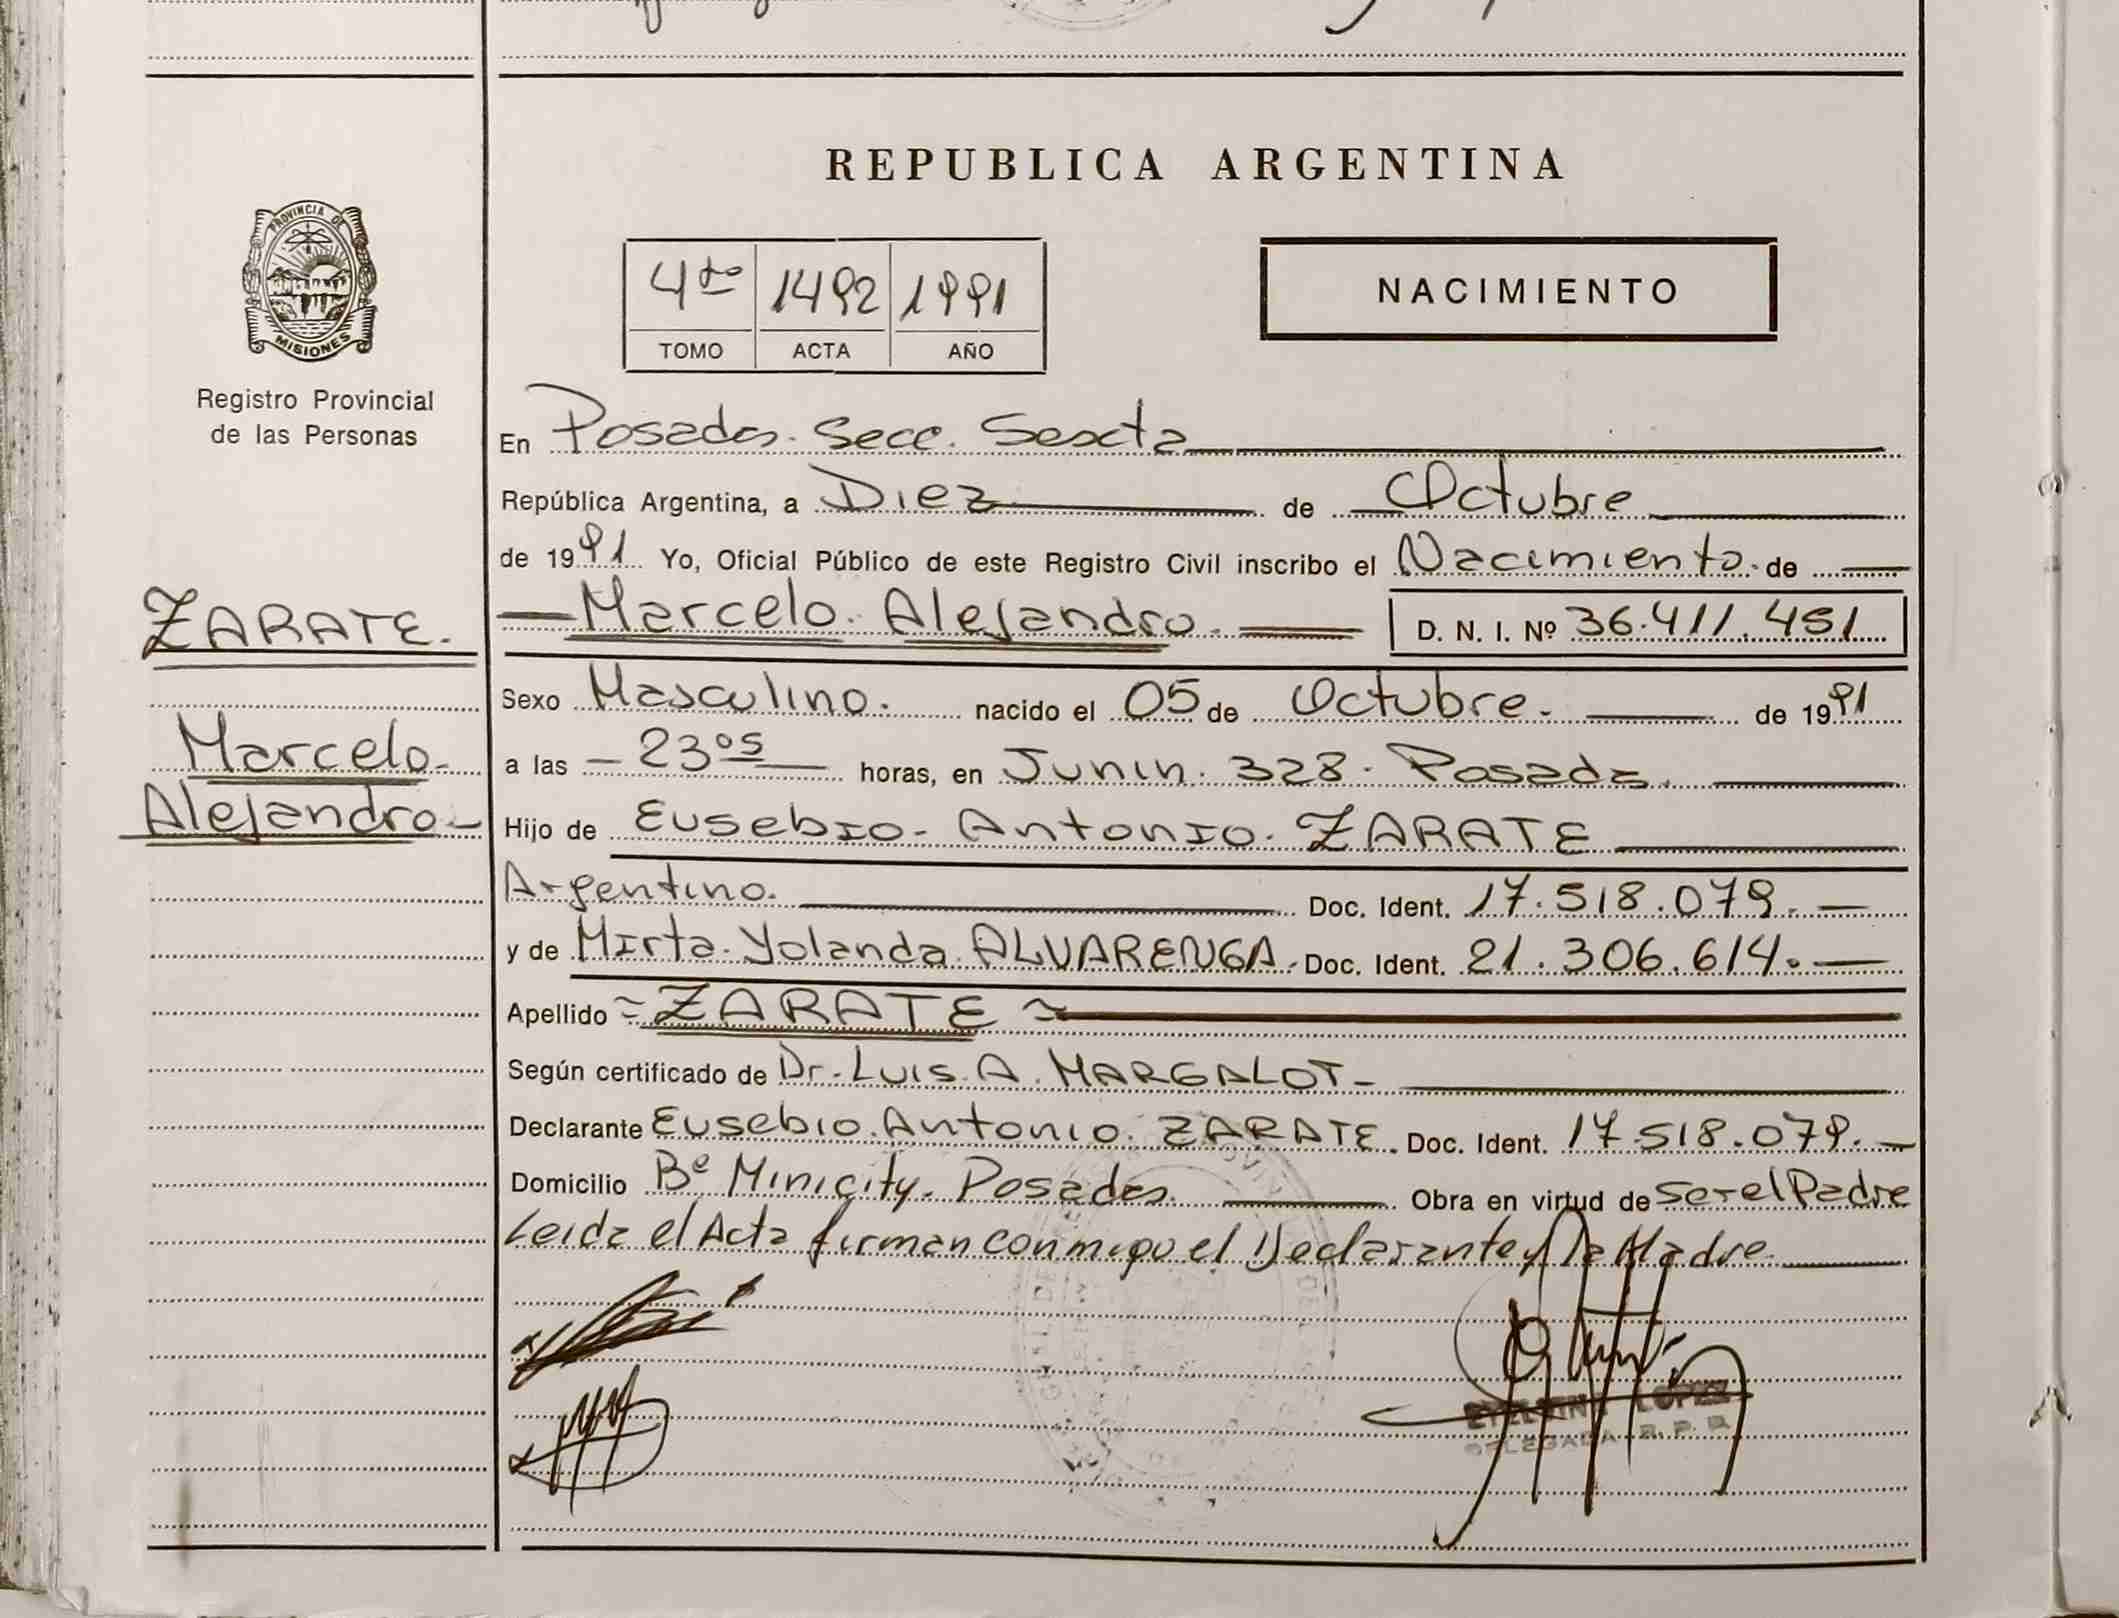 REPUBLICA ARGENTINA
PROVINCIA DE
MISIONES
Registro Provincial
de las Personas
4to 1492 1991
TOMO ACTA AÑO
NACIMIENTO
En Posadas. Secc. Sexta
República Argentina, a Diez de Octubre
de 1991 Yo, Oficial Público de este Registro Civil inscribo el Nacimiento de
ZARATE.
Marcelo Alejandro D. N. I. Nº 36.411.451
Sexo Masculino. nacido el 05 de Octubre. de 1991
Marcelo
Alejandro
a las 23⁰⁵ horas, en Junin. 328. Posadas.
Hijo de Eusebio Antonio ZARATE
Argentino. Doc. Ident. 17.518.079.
y de Mirta Yolanda ALVARENGA. Doc. Ident. 21.306.614.
Apellido = ZARATE =
Según certificado de Dr. LUIS A. MARGALOT
Declarante Eusebio Antonio ZARATE. Doc. Ident. 17.518.079.
Domicilio Bº Minicity. Posadas. Obra en virtud de ser el Padre
Leida el Acta firman conmigo el Declarante y la Madre.
LOPEZ
DELEGADA R. P. P.